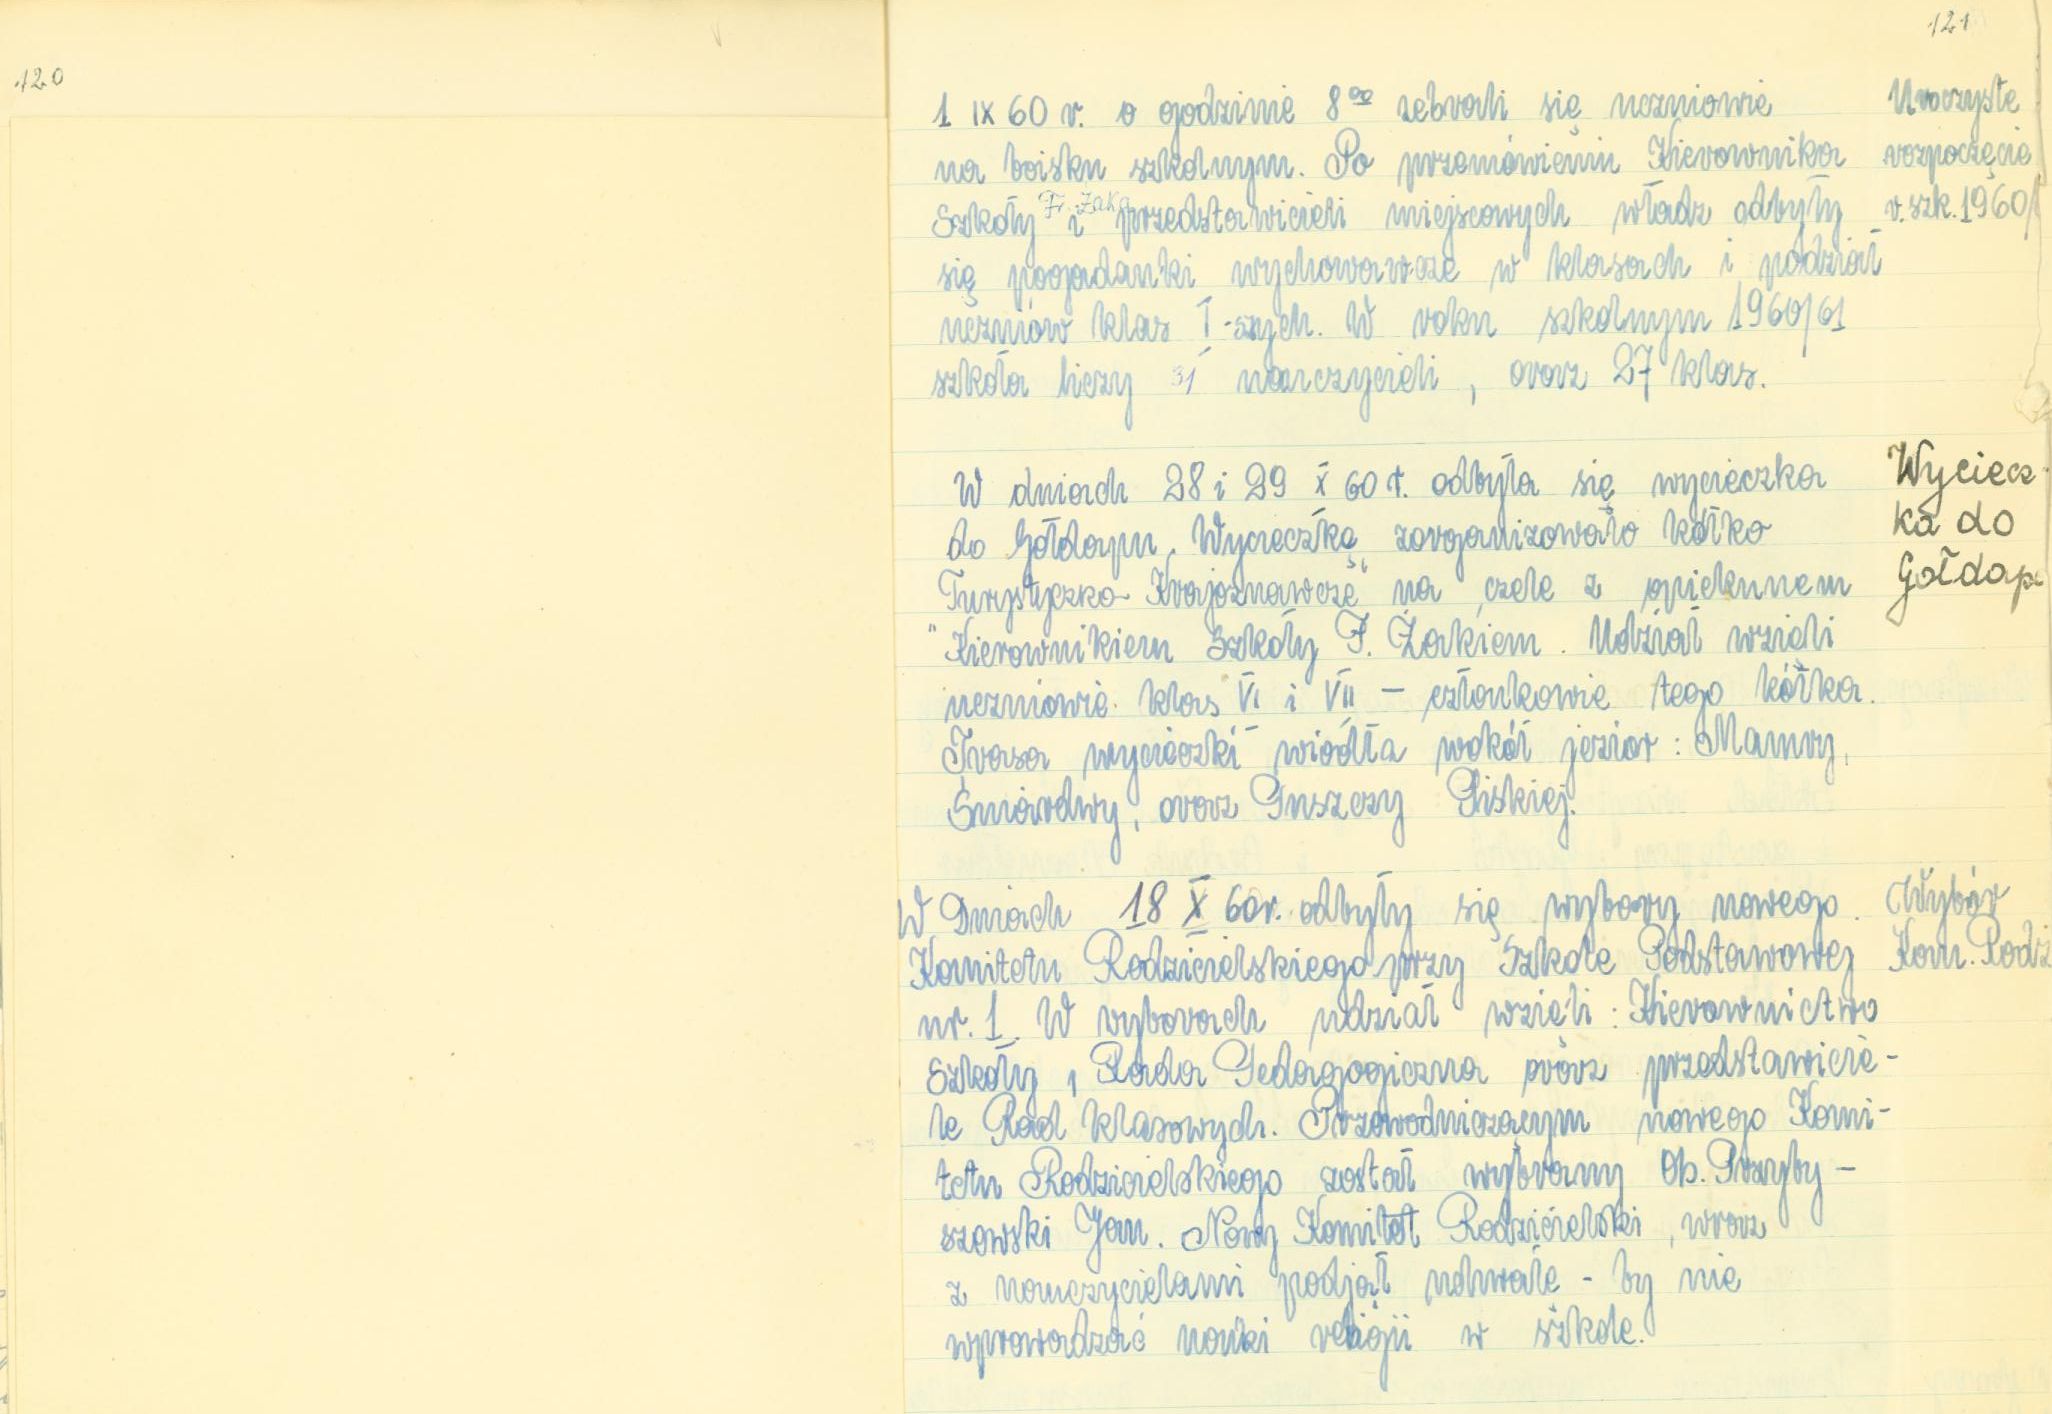 120
121
1 IX 60 r. o godzinie 8⁰⁰ zebrali się uczniowie
na boisku szkolnym. Po przemówieniu Kierownika
Szkoły Fr. Żaka i przedstawicieli miejscowych władz odbyły
się pogadanki wychowawcze w klasach i podział
uczniów klas I-szych. W roku szkolnym 1960/61
szkoła liczy 31 nauczycieli, oraz 27 klas.
Uroczyste
rozpoczęcie
r. szk. 1960/
W dniach 28 i 29 X 60 r. odbyła się wycieczka
do Gołdapu. Wycieczkę zorganizowało kółko
Turystyczko-Krajoznawcze" na czele z opiekunem
"Kierownikiem Szkoły F. Żakiem. Udział wzieli
uczniowie klas VI i VII – członkowie tego kółka.
Trasa wycieczki wiodła wokół jezior: Mamry,
Śniardwy, oraz Puszczy Piskiej.
Wyciecz-
ka do
Gołdap
W Dniach 18 X 60 r. odbyły się wybory nowego
Komitetu Rodzicielskiego przy Szkole Podstawowej
nr. 1. W wyborach udział wzieli: Kierownictwo
Szkoły, Rada Pedagogiczna oraz przedstawicie-
le Rad klasowych. Przewodniczącym nowego Komi-
tetu Rodzicielskiego został wybrany Ob. Przyby-
szewski Jan. Nowy Komitet Rodzicielski, wraz
z nauczycielami podjął uchwałe - by nie
wprowadzać nauki religii w szkole.
Wybór
Kom. Rodz